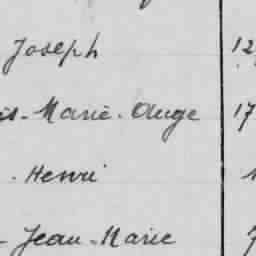 Joseph 12
is - Marie - Ange 17
- Henri
- Jean - Marie